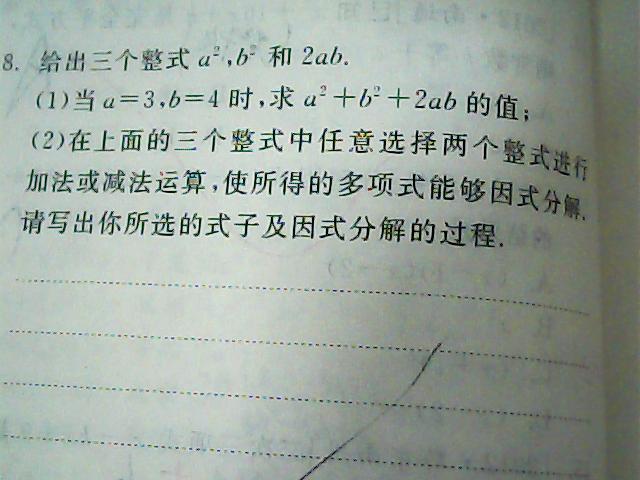 8. 给出三个整式 a²,b² 和 2ab.
(1)当 a=3,b=4 时,求 a²+b²+2ab 的值;
(2)在上面的三个整式中任意选择两个整式进行
加法或减法运算,使所得的多项式能够因式分解.
请写出你所选的式子及因式分解的过程.